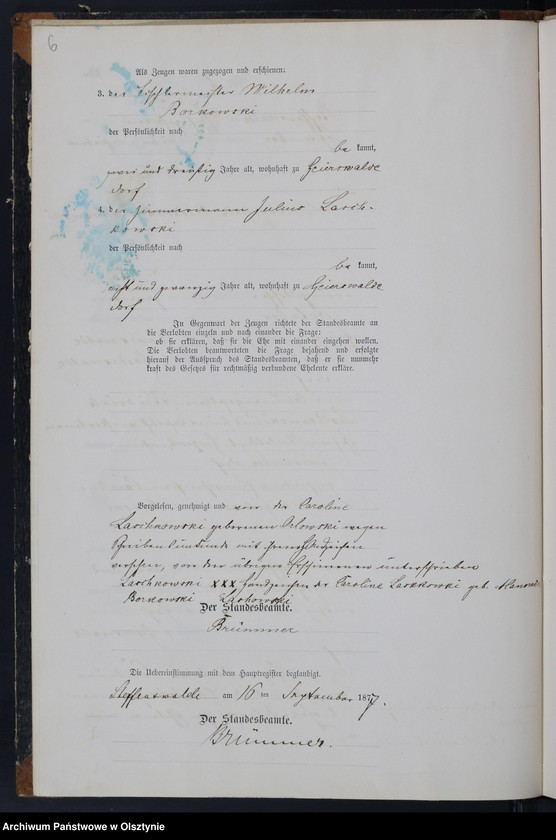 6
Als Zeugen waren zugezogen und erschienen:
3. der Tischlermeister Wilhelm
Borkowski
der Persönlichkeit nach
be kannt,
zwei und dreißig Jahre alt, wohnhaft zu Geierswalde
dorf
4. der Zimmermann Julius Lasch-
kowski
der Persönlichkeit nach
be kannt,
acht und zwanzig Jahre alt, wohnhaft zu Geierswalde
dorf
In Gegenwart der Zeugen richtete der Standesbeamte an
die Verlobten einzeln und nach einander die Frage:
ob sie erklären, daß sie die Ehe mit einander eingehen wollen.
Die Verlobten beantworteten die Frage bejahend und erfolgte
hierauf der Ausspruch des Standesbeamten, daß er sie nunmehr
kraft des Gesetzes für rechtmäßig verbundene Eheleute erkläre.
Vorgelesen, genehmigt und von der Caroline
Laschkowski geborenen wegen
Schreibensunkunde mit Handzeichen
versehen, von den übrigen Erschienenen unterschrieben
Laschkowski xxx Handzeichen der Caroline Laschkowski geb.
Borkowski Lachowski
Der Standesbeamte.
Brümmer
Die Uebereinstimmung mit dem Hauptregister beglaubigt.
am 16 ten September 1877.
Der Standesbeamte.
Brümmer.
Archiwum Państwowe w Olsztynie